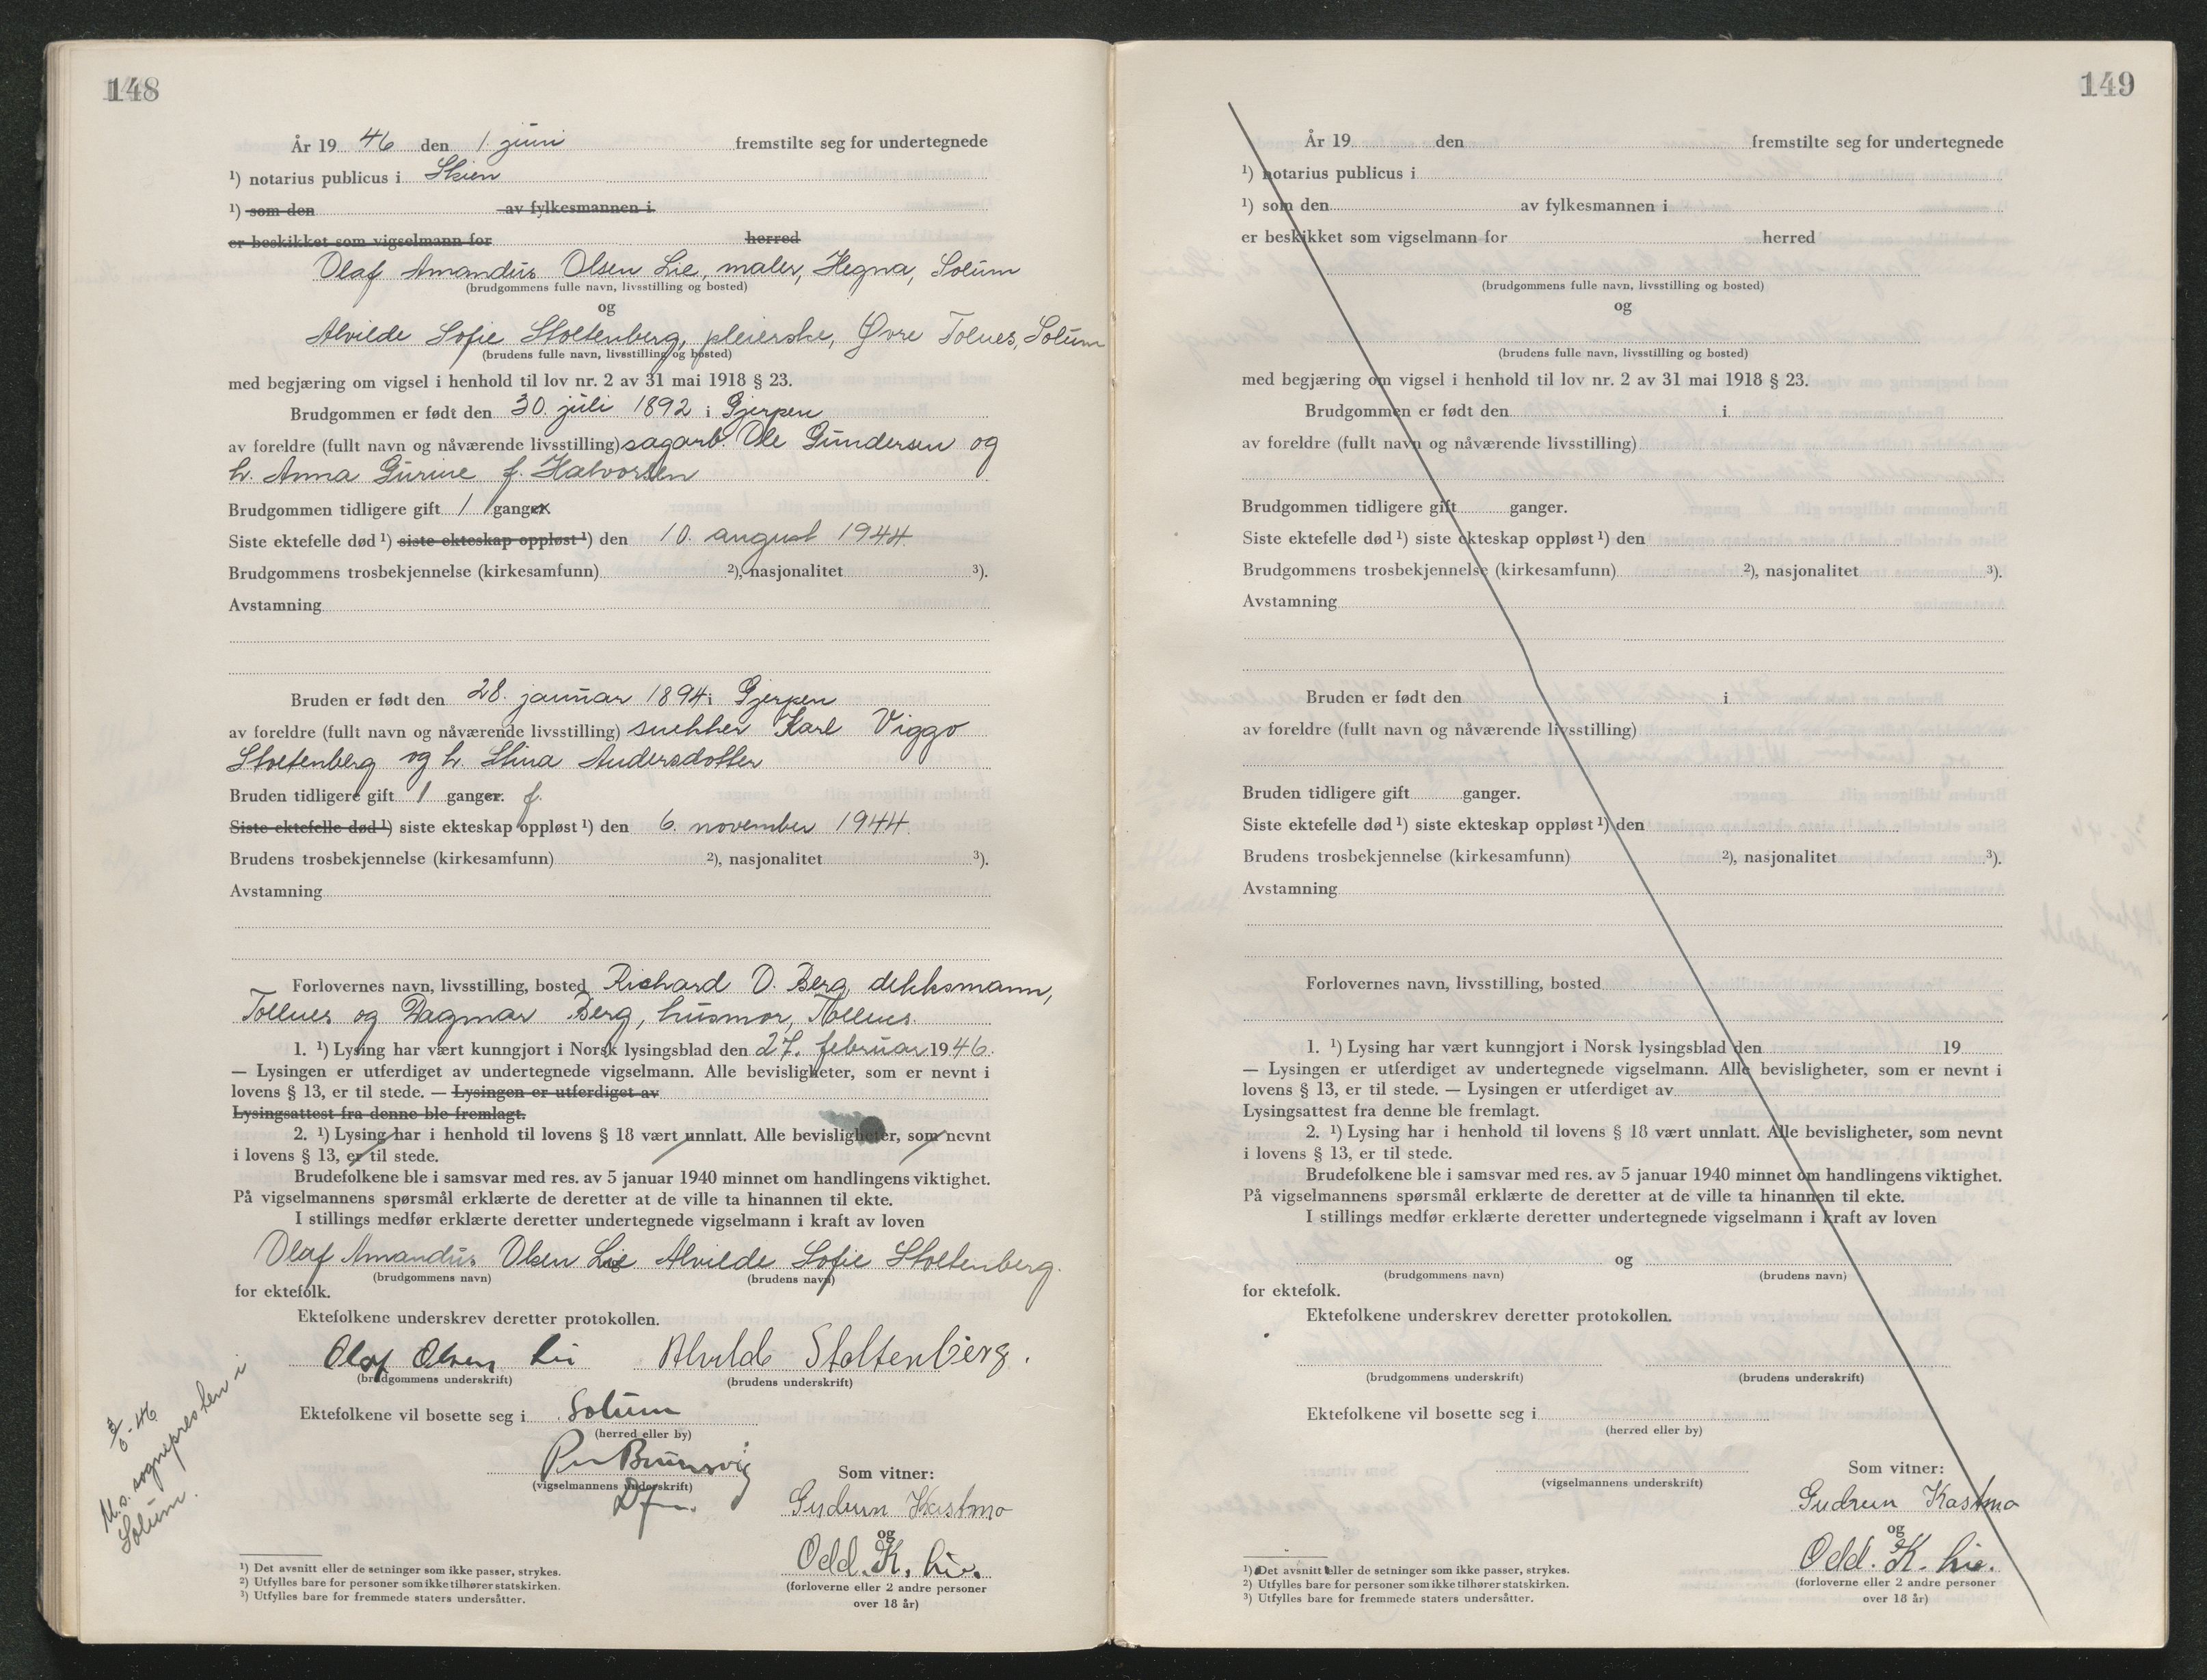 148
År 19 46 den 1. juni fremstilte seg for undertegnede
¹) notarius publicus i Skien
¹) som den av fylkesmannen i
er beskikket som vigselmann for herred
Olaf Amandus Olsen Lie, maler, Hegna, Solum
(brudgommens fulle navn, livsstilling og bosted)
og
Alvilde Sofie Stoltenberg, pleierske, Øvre Tolnes, Solum
(brudens fulle navn, livsstilling og bosted)
med begjæring om vigsel i henhold til lov nr. 2 av 31 mai 1918 § 23.
Brudgommen er født den 30. juli 1892 i Gjerpen
av foreldre (fullt navn og nåværende livsstilling) sagarb. Ole Gundersen og
h. Anna Gurine f. Halvorsen
Brudgommen tidligere gift 1 ganger
Siste ektefelle død ¹) siste ekteskap oppløst ¹) den 10. august 1944
Brudgommens trosbekjennelse (kirkesamfunn) ²), nasjonalitet ³).
Avstamning
Bruden er født den 28. januar 1894 i Gjerpen
av foreldre (fullt navn og nåværende livsstilling) snekker Karl Viggo
Stoltenberg og h. Stina Andersdotter
Bruden tidligere gift 1 ganger. f.
Siste ektefelle død ¹) siste ekteskap oppløst ¹) den 6. november 1944
Brudens trosbekjennelse (kirkesamfunn) ²), nasjonalitet ³).
Avstamning
Forlovernes navn, livsstilling, bosted Richard O. Berg, dekksmann,
Tollnes og Dagmar Berg, husmor, Tollnes.
1. ¹) Lysing har vært kunngjort i Norsk lysingsblad den 27. februar 1946.
— Lysingen er utferdiget av undertegnede vigselmann. Alle bevisligheter, som er nevnt i
lovens § 13, er til stede. — Lysingen er utferdiget av
Lysingsattest fra denne ble fremlagt.
2. ¹) Lysing har i henhold til lovens § 18 vært unnlatt. Alle bevisligheter, som nevnt
i lovens § 13, er til stede.
Brudefolkene ble i samsvar med res. av 5 januar 1940 minnet om handlingens viktighet.
På vigselmannens spørsmål erklærte de deretter at de ville ta hinannen til ekte.
I stillings medfør erklærte deretter undertegnede vigselmann i kraft av loven
Olaf Amandus Olsen Lie Alvilde Sofie Stoltenberg.
(brudgommens navn) (brudens navn)
for ektefolk.
Ektefolkene underskrev deretter protokollen.
Olaf Olsen Lie Alvilde Stoltenberg.
(brudgommens underskrift) (brudens underskrift)
Ektefolkene vil bosette seg i Solum
(herred eller by)
(vigselmannens underskrift)
Som vitner:
Gudrun Kastmo
og
Odd. K. Lie.
(forloverne eller 2 andre personer
over 18 år)
3/6-46
M.s. sognepresten i
Solum.
¹) Det avsnitt eller de setninger som ikke passer, strykes.
²) Utfylles bare for personer som ikke tilhører statskirken.
³) Utfylles bare for fremmede staters undersåtter.
149
År 19 den fremstilte seg for undertegnede
¹) notarius publicus i
¹) som den av fylkesmannen i
er beskikket som vigselmann for herred
(brudgommens fulle navn, livsstilling og bosted)
og
(brudens fulle navn, livsstilling og bosted)
med begjæring om vigsel i henhold til lov nr. 2 av 31 mai 1918 § 23.
Brudgommen er født den i
av foreldre (fullt navn og nåværende livsstilling)
Brudgommen tidligere gift ganger.
Siste ektefelle død ¹) siste ekteskap oppløst ¹) den
Brudgommens trosbekjennelse (kirkesamfunn) ²), nasjonalitet ³).
Avstamning
Bruden er født den i
av foreldre (fullt navn og nåværende livsstilling)
Bruden tidligere gift ganger.
Siste ektefelle død ¹) siste ekteskap oppløst ¹) den
Brudens trosbekjennelse (kirkesamfunn) ²), nasjonalitet ³).
Avstamning
Forlovernes navn, livsstilling, bosted
1. ¹) Lysing har vært kunngjort i Norsk lysingsblad den 19
— Lysingen er utferdiget av undertegnede vigselmann. Alle bevisligheter, som er nevnt i
lovens § 13, er til stede. — Lysingen er utferdiget av
Lysingsattest fra denne ble fremlagt.
2. ¹) Lysing har i henhold til lovens § 18 vært unnlatt. Alle bevisligheter, som nevnt
i lovens § 13, er til stede.
Brudefolkene ble i samsvar med res. av 5 januar 1940 minnet om handlingens viktighet.
På vigselmannens spørsmål erklærte de deretter at de ville ta hinannen til ekte.
I stillings medfør erklærte deretter undertegnede vigselmann i kraft av loven
og
(brudgommens navn) (brudens navn)
for ektefolk.
Ektefolkene underskrev deretter protokollen.
(brudgommens underskrift) (brudens underskrift)
Ektefolkene vil bosette seg i
(herred eller by)
(vigselmannens underskrift)
Som vitner:
Gudrun Kastmo
og
Odd. K. Lie.
(forloverne eller 2 andre personer
over 18 år)
¹) Det avsnitt eller de setninger som ikke passer, strykes.
²) Utfylles bare for personer som ikke tilhører statskirken.
³) Utfylles bare for fremmede staters undersåtter.